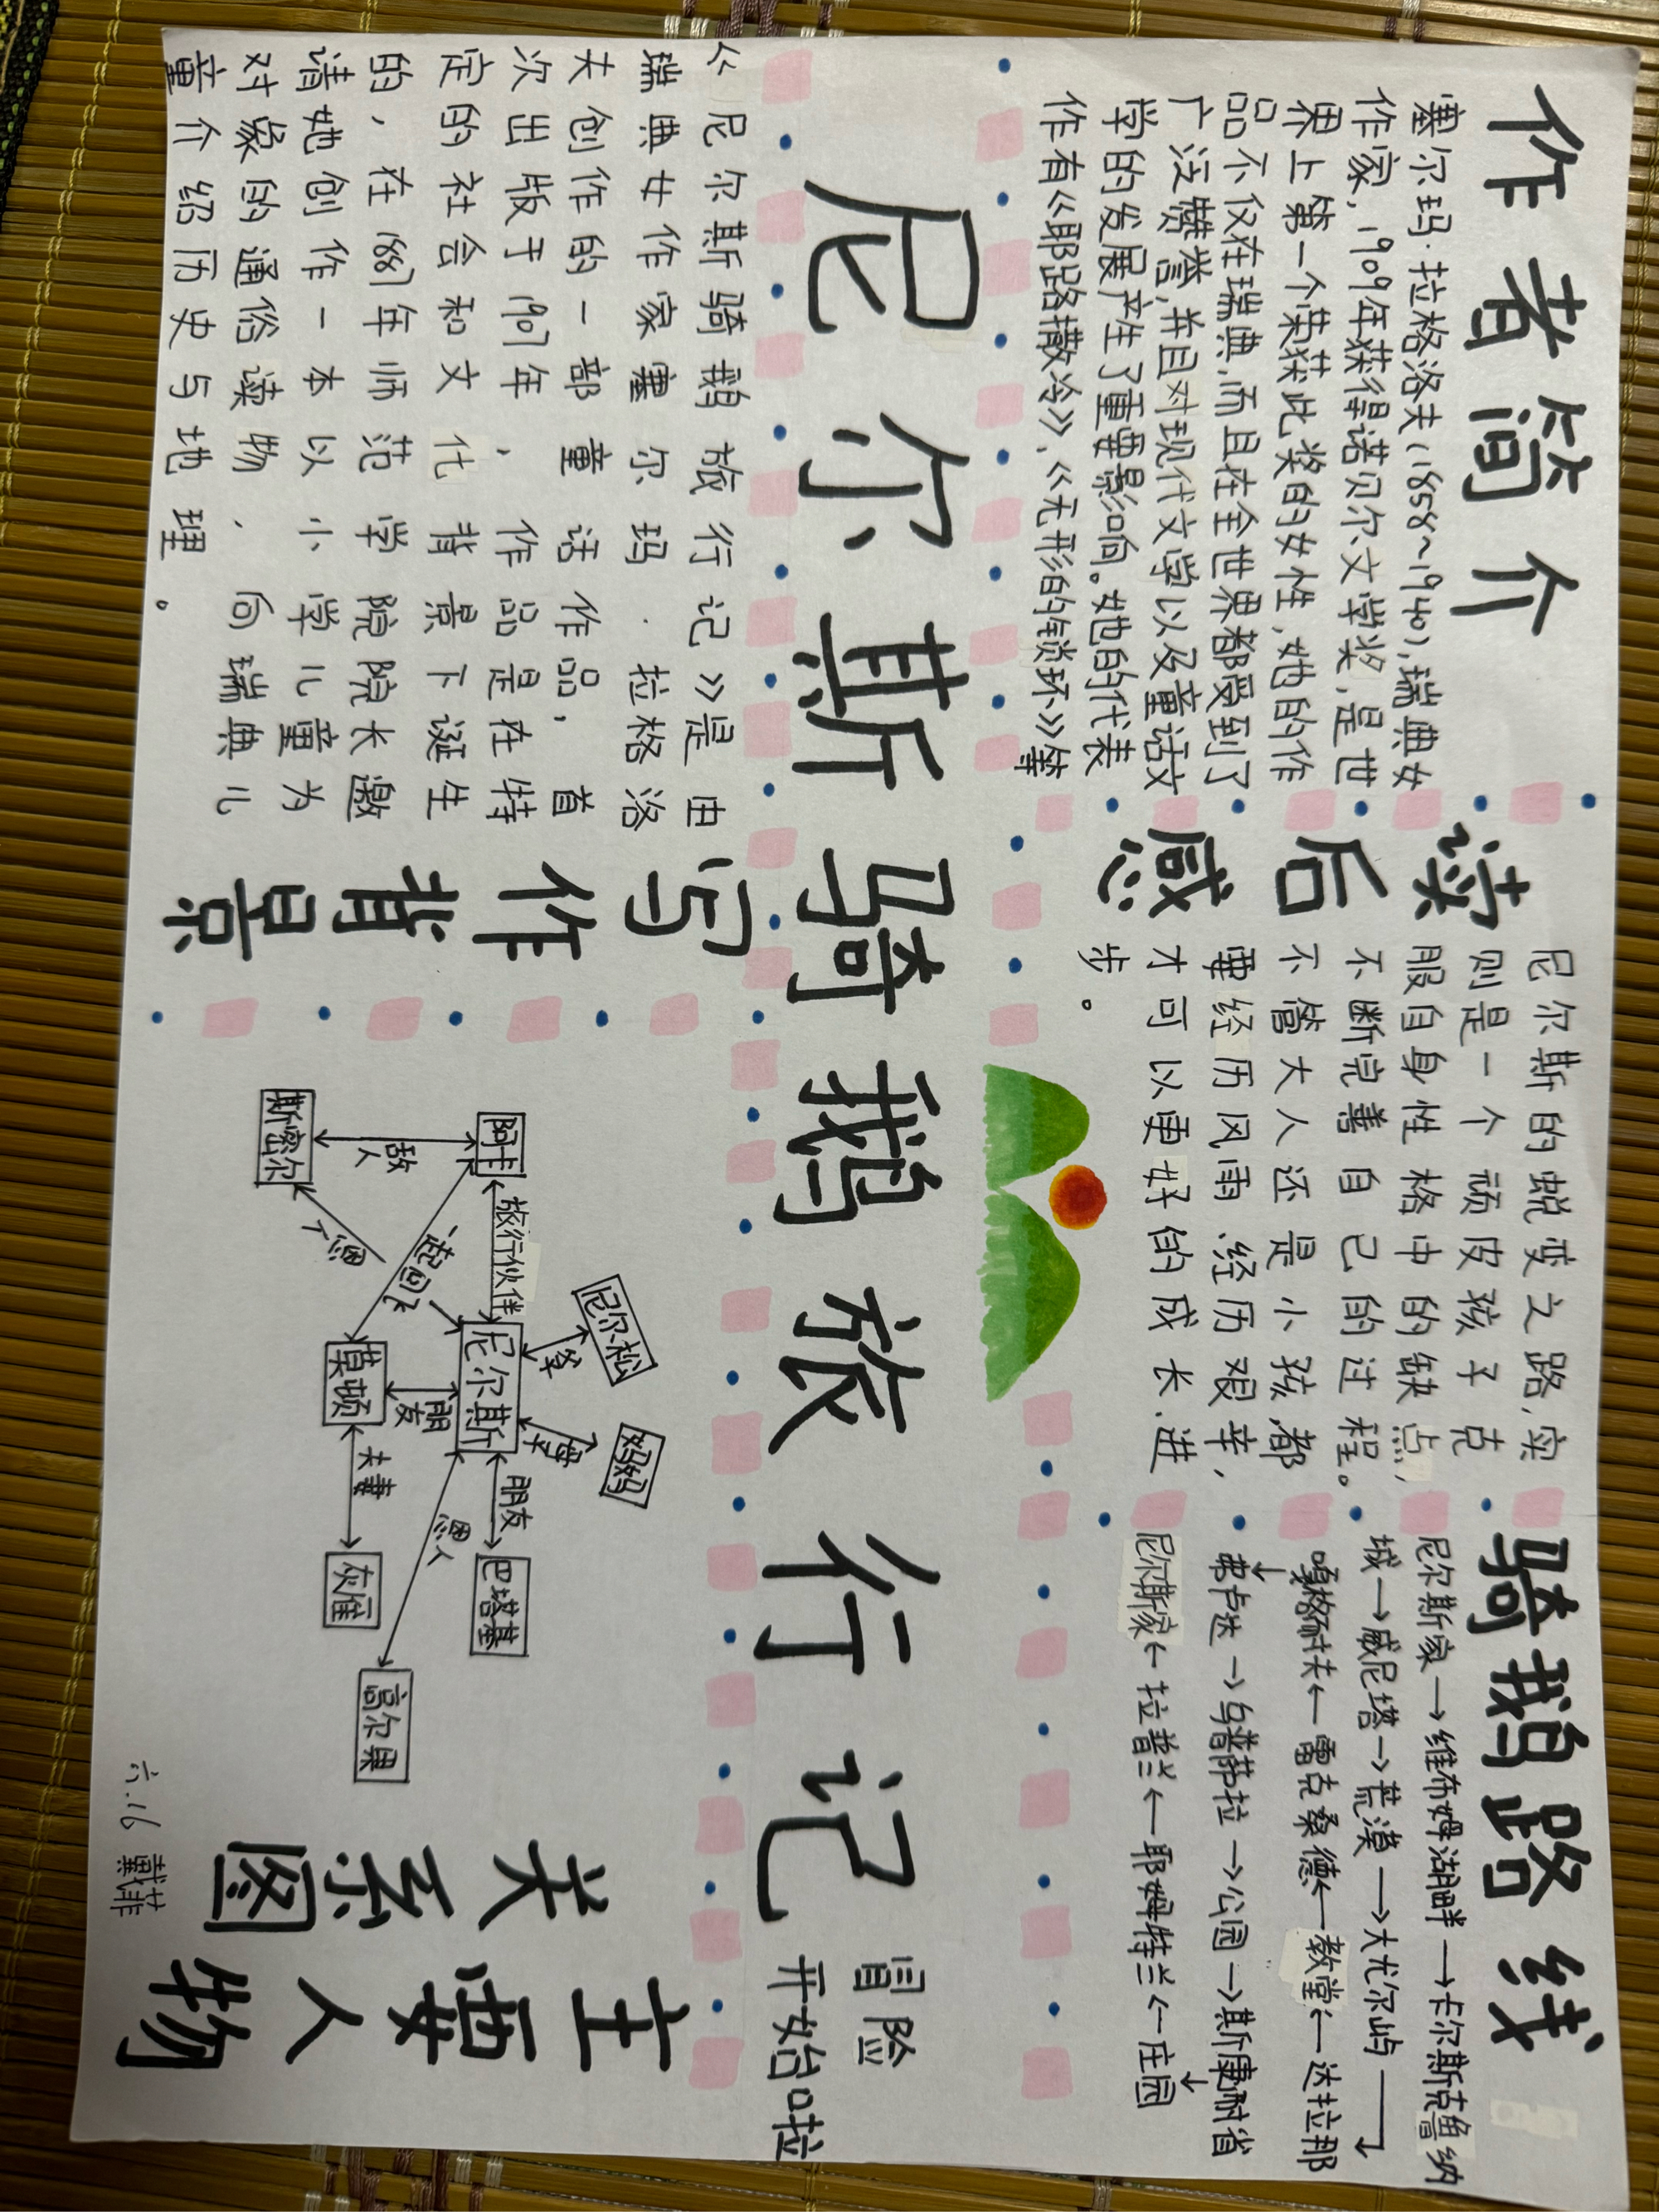 作者简介
塞尔玛·拉格洛夫(1858~1940),瑞典女
作家,1909年获得诺贝尔文学奖,是世
界上第一个荣获此奖的女性,她的作
品不仅在瑞典,而且在全世界都受到了
广泛赞誉,并且对现代文学以及童话文
学的发展产生了重要影响。她的代表
作有《耶路撒冷》、《无形的锁环》等
读后感
尼尔斯的蜕变之路,实
则是一个顽皮孩子克
服自身性格中的缺点,
不断完善自己的过程。
不管大人还是小孩,都
要经历风雨、经历艰辛,
才可以更好的成长、进
步。
骑鹅路线
尼尔斯家→维布姆湖畔→卡尔斯克鲁纳
城→威尼塔→荒漠→大尤尔屿
嘎格耐夫←雷克桑德←教堂←达拉那
弗卢达→乌普萨拉→公园→斯康耐省
尼尔斯家←拉普兰←耶姆特兰←庄园
尼尔斯骑鹅旅行记
冒险
开始啦
《尼尔斯骑鹅旅行记》是由
瑞典女作家塞尔玛·拉格洛
夫创作的一部童话作品,首
次出版于1907年,作品是在特
定的社会和文化背景下诞生
的,在1887年师范学院院长邀
请她创作一本以小学儿童为
对象的通俗读物,向瑞典儿
童介绍历史与地理。
写作背景
尼尔松
妈妈
爹
母子
阿卡
旅行伙伴
尼尔斯
朋友
巴塔基
敌人
送回飞
恩人
朋友
恩人
斯密尔
莫顿
夫妻
灰雁
高尔果
主要人物
关系图
六.16 戴菲